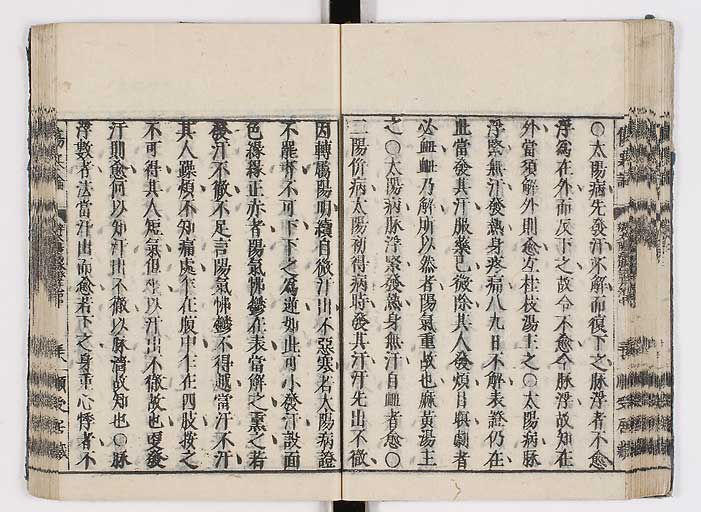 ○太陽病先發汗不解而復下之脉浮者不愈
浮爲在外而反下之故令不愈今脉浮故知在
外當須解外則愈宜桂枝湯主之○太陽病脉
浮緊無汗發熱身疼痛八九日不解表證仍在
此當發其汗服藥已微除其人發煩目瞑劇者
必衄衄乃解所以然者陽氣重故也麻黃湯主
之○太陽病脉浮緊發熱身無汗自衄者愈○
二陽併病太陽初得病時發其汗汗先出不徹
因轉屬陽明續自微汗出不惡寒若太陽病證
不罷者不可下下之爲逆如此可小發汗設面
色緣緣正赤者陽氣怫鬱在表當解之熏之若
發汗不徹不足言陽氣怫鬱不得越當汗不汗
其人躁煩不知痛處乍在腹中乍在四肢按之
不可得其人短氣但坐以汗出不徹故也更發
汗則愈何以知汗出不徹以脉濇故知也○脉
浮數者法當汗出而愈若下之身重心悸者不